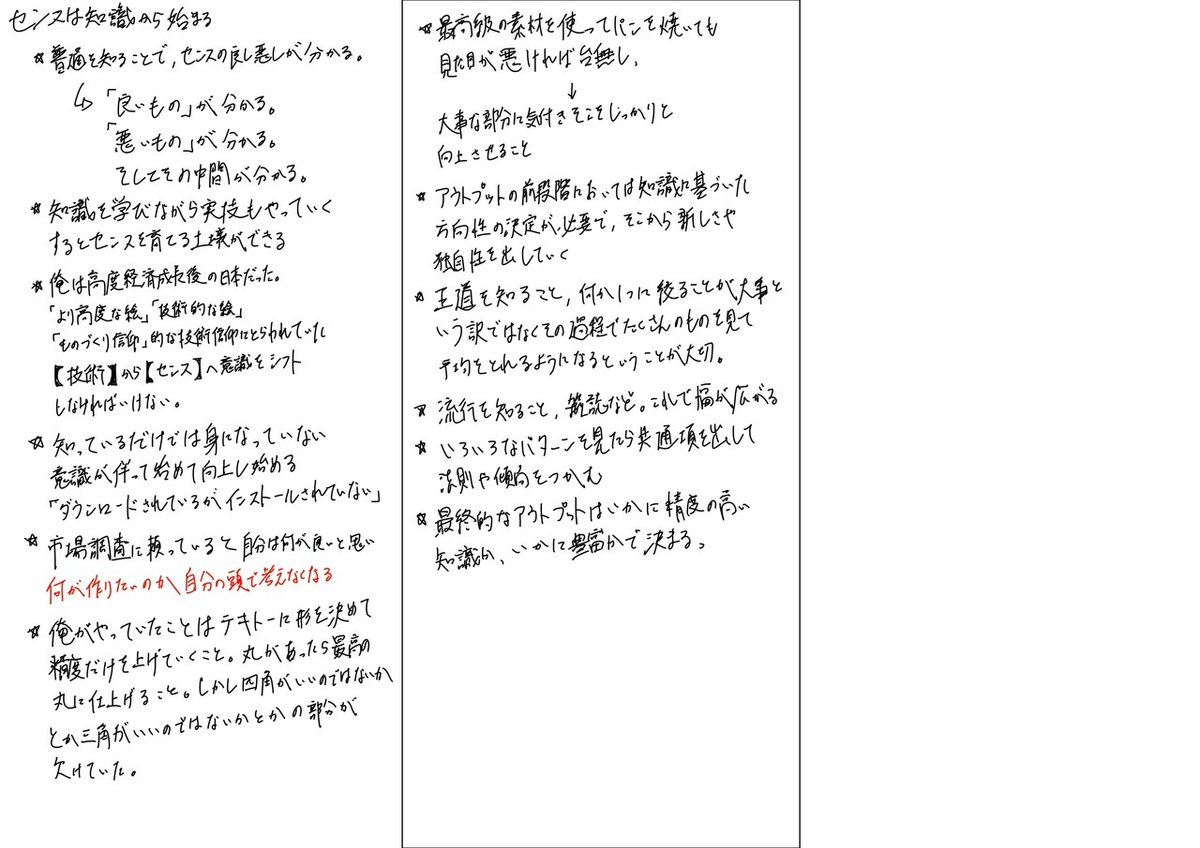 センスは知識から始まる
☆普通を知ることで、センスの良し悪しが分かる。
↳「良いもの」が分かる。
「悪いもの」が分かる。
そしてその中間が分かる。
☆知識を学びながら実技もやっていく
するとセンスを育てる土壌ができる
☆俺は高度経済成長後の日本だった。
「より高度な絵」「技術的な絵」
「ものづくり信仰」的な技術信仰にとらわれていた
【技術】から【センス】へ意識をシフト
しなければいけない。
☆知っているだけでは身になっていない
意識が伴って始めて向上し始める
「ダウンロードされているがインストールされていない」
☆市場調査に頼っていると自分は何が良いと思い
何が作りたいのか自分の頭で考えなくなる
☆俺がやっていたことはテキトーに形を決めて
精度だけを上げていくこと。丸があったら最高の
丸に仕上げること。しかし四角がいいのではないか
とか三角がいいのではないかとかの部分が
欠けていた。
☆最高級の素材を使ってパンを焼いても
見た目が悪ければ台無し、
↓
大事な部分に気付きそこをしっかりと
向上させること
☆アウトプットの前段階においては知識に基づいた
方向性の決定が必要で、そこから新しさや
独自性を出していく
☆王道を知ること、何か1つに絞ることが大事と
いう訳ではなくその過程でたくさんのものを見て
平均をとれるようになるということが大切。
☆流行を知ること、雑読など。これで幅が広がる
☆いろいろなパターンを見たら共通項を出して
法則や傾向をつかむ
☆最終的なアウトプットはいかに精度の高い
知識か、いかに豊富かで決まる。